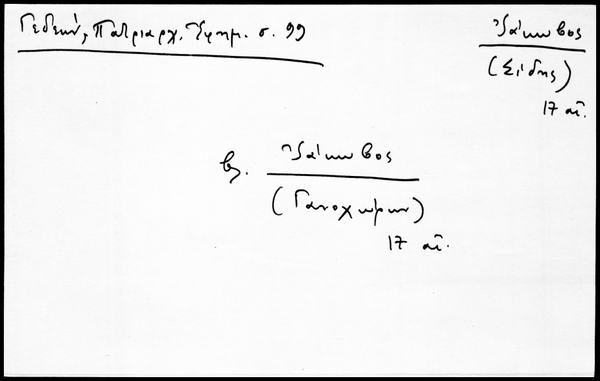 Γεδεών, Πατριαρχ. Ἐφημ. σ. 99
Ἰάκωβος
(Σίδης)
17 αἰ.
βλ. Ἰάκωβος
(Γανοχώρων)
17 αἰ.